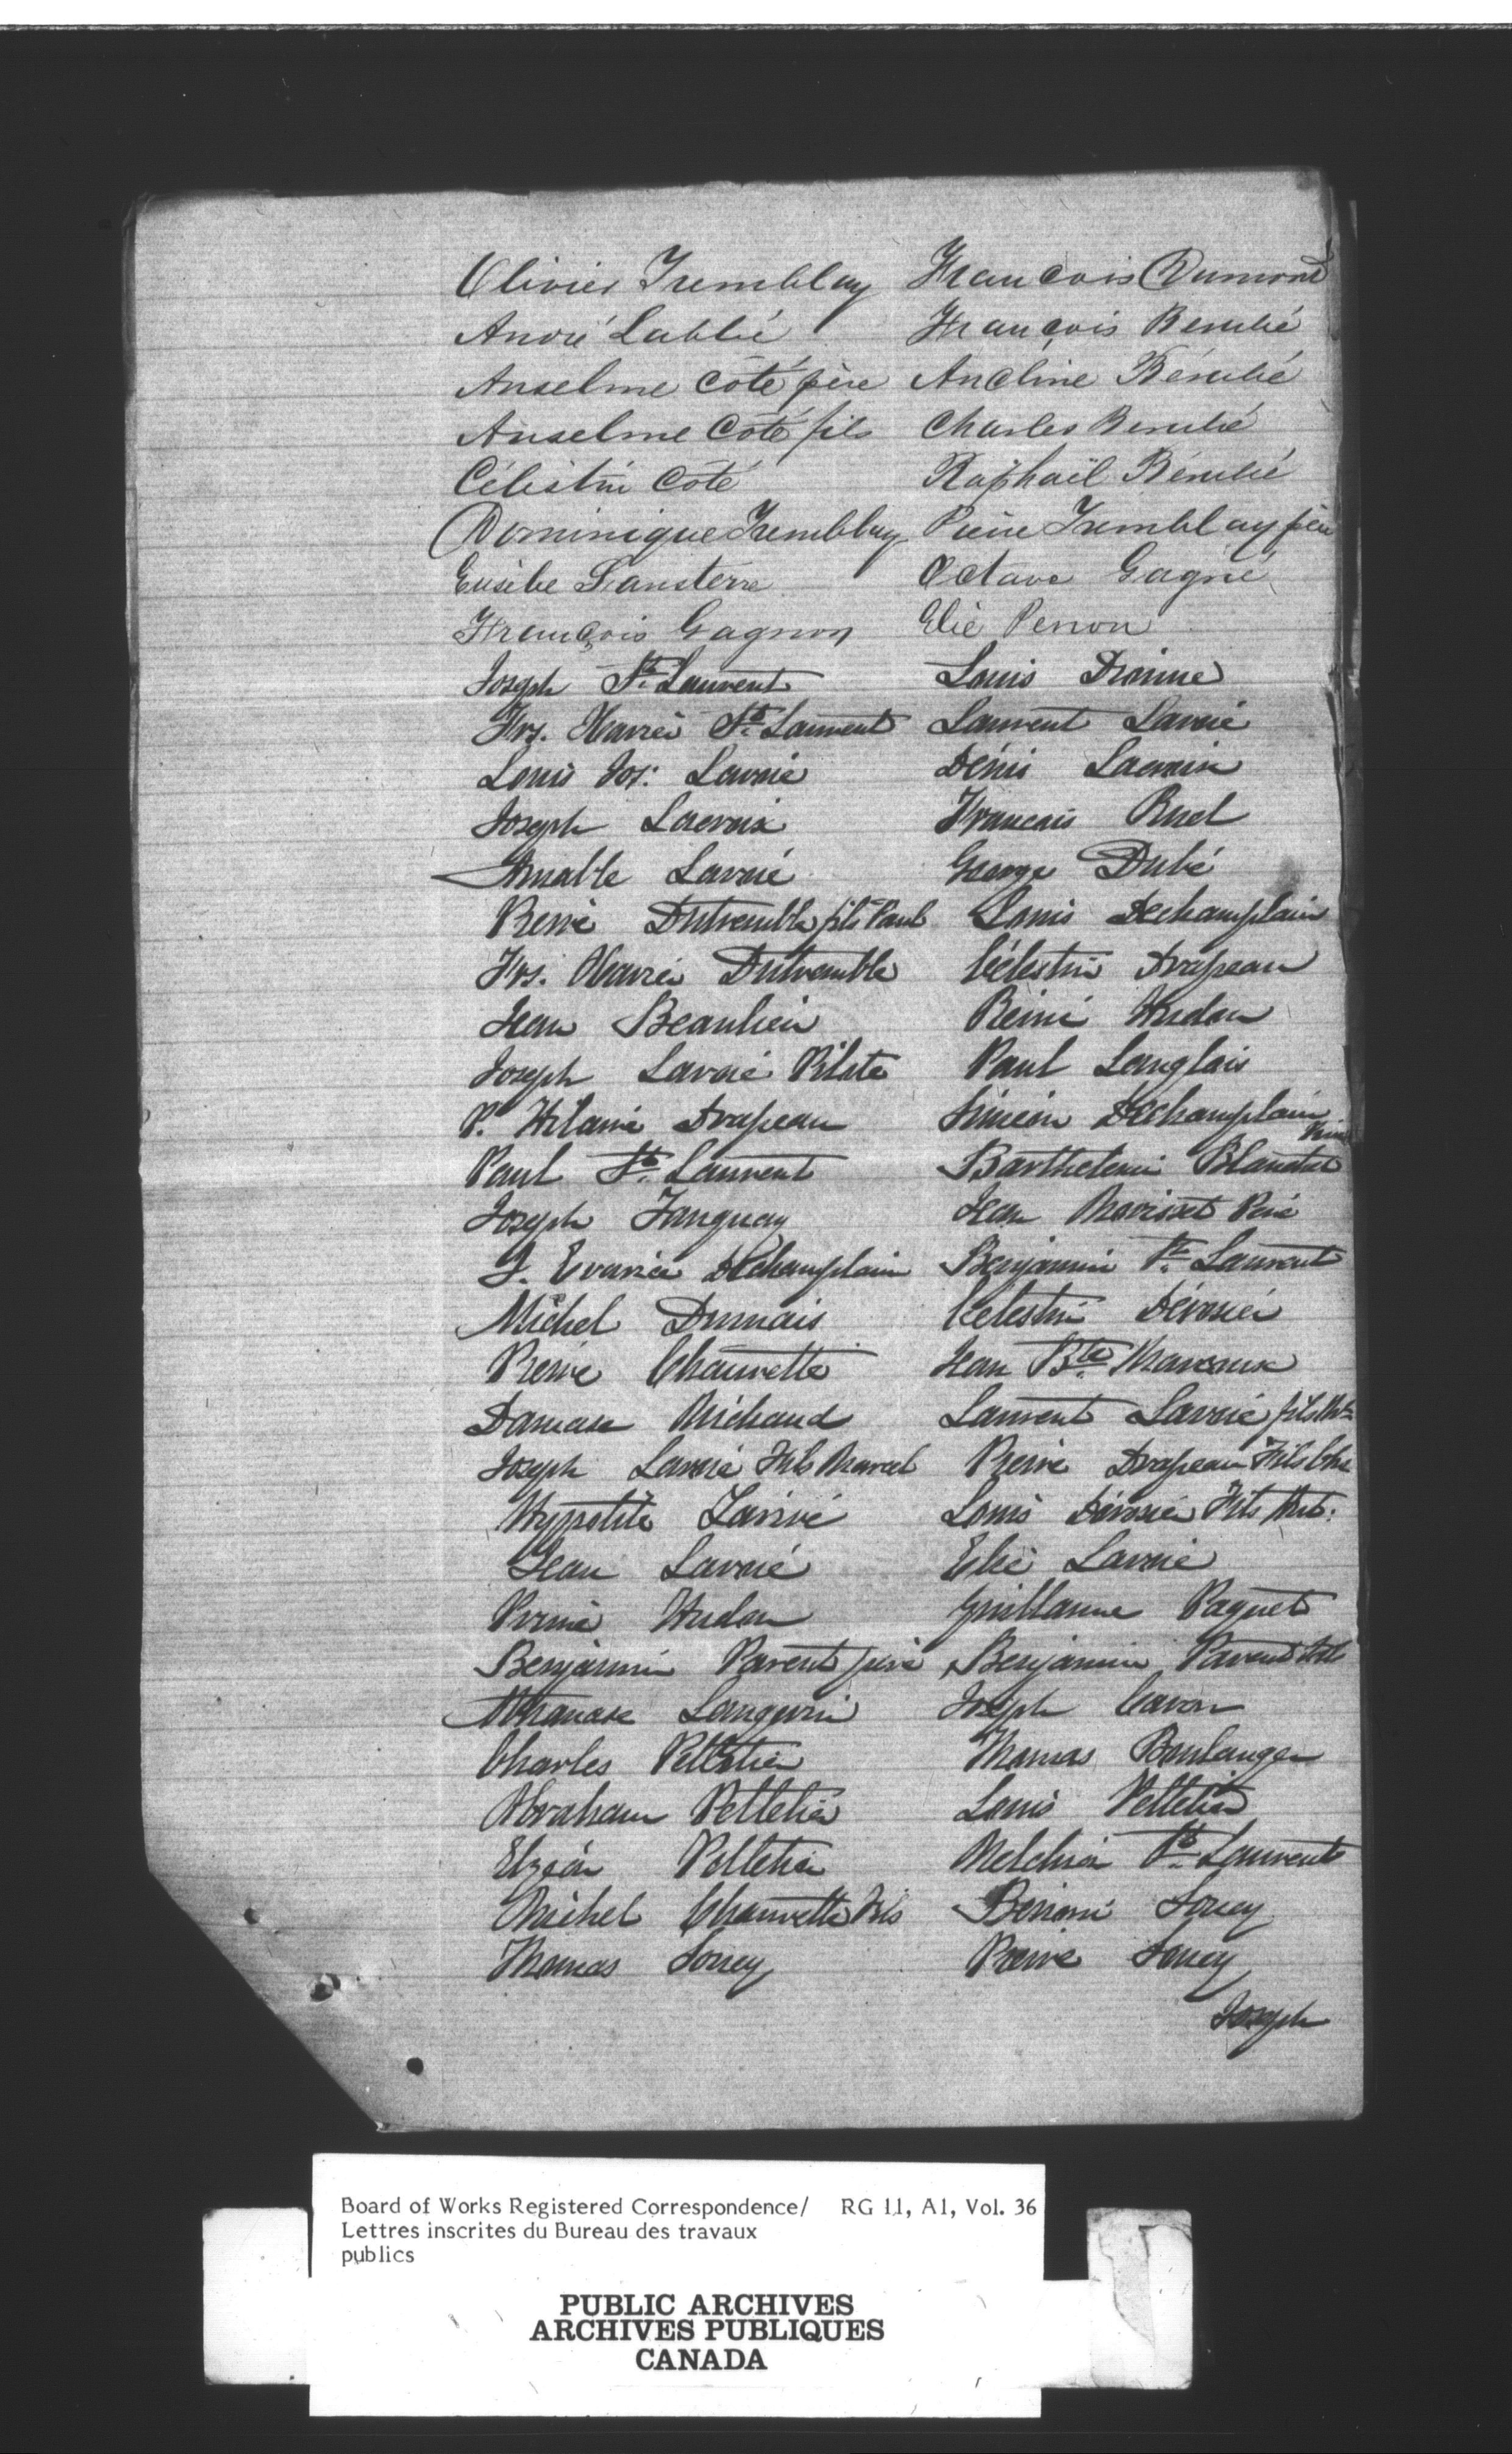 Olivier Tremblay François Dumont
André Lablié François Berubé
Anselme Côté père Ancline Bérubé
Anselme Côté fils Charles Berubé
Célestin Côté Raphaël Bérubé
Dominique Tremblay Pierre Tremblay père
Eusèbe Sansterre Octave Gagné
François Gagnon Elie Perron
Joseph St. Laurent Louis Dionne
Frs. Xavier St. Laurent Laurent Lavoie
Louis Jos: Lavoie Dénis Lacroix
Joseph Lacroix Francais Ruel
Amable Lavoié George Dubé
Pierre Dutremble fils Paul Louis Dechamplain
Frs. Xavier Dutremble Célestin Drapeau
Jean Beaulieu Rémi Hudon
Joseph Lavoié Pilote Paul Langlais
P. Hilaire Drapeau Simeon Dechamplain
Paul St. Laurent Barthelemi Blanchet
Joseph Tanguay Jean Morisset Père
Dechamplain Benjamin St. Laurent
Michel Dumais Célestin Dérosier
Pierre Chauvette Jean Bte. Marceaux
Damase Michaud Laurent Lavoie fils
Joseph Lavoié Fils Marcel Pierre Drapeau Fils Chs
Hyppolite Larivé Louis Dérosier Fils
Jean Lavoié Elie Lavoie
Hudon Guillaume Paquet
Benjamin Parent père Benjamin Parent fils
Athanase Langevin Joseph Caron
Charles Pelletier Thomas Boulanger
Abraham Pelletier Louis Pelletier
Elzéar Pelletier Melchior St. Laurent
Michel Chauvette Fils Bénoni Soucy
Thomas Soucy Pierre Soucy
Joseph
Board of Works Registered Correspondence/ RG 11, A1, Vol. 36
Lettres inscrites du Bureau des travaux
publics
PUBLIC ARCHIVES
ARCHIVES PUBLIQUES
CANADA